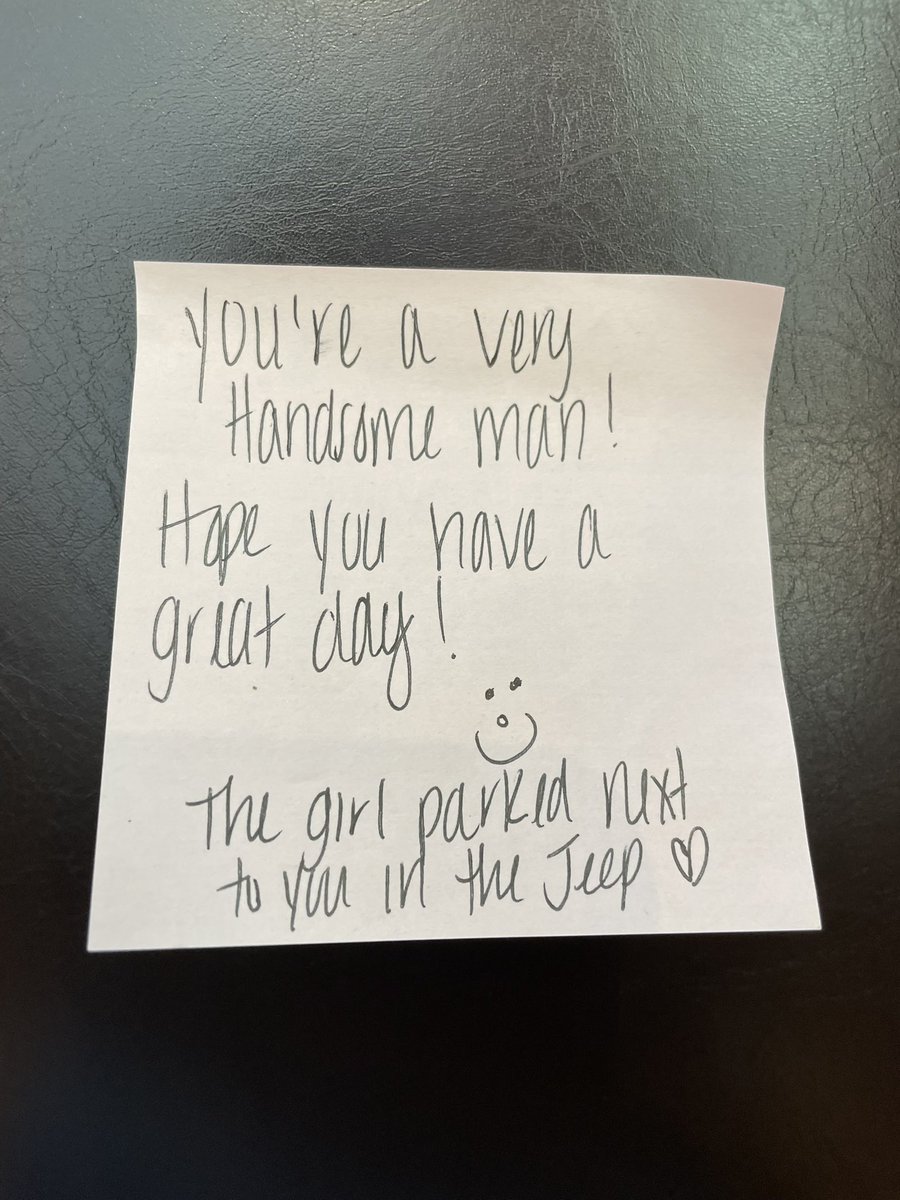 You're a very
Handsome man!
Hope you have a
great day!
The girl parked next
to you in the Jeep ♡